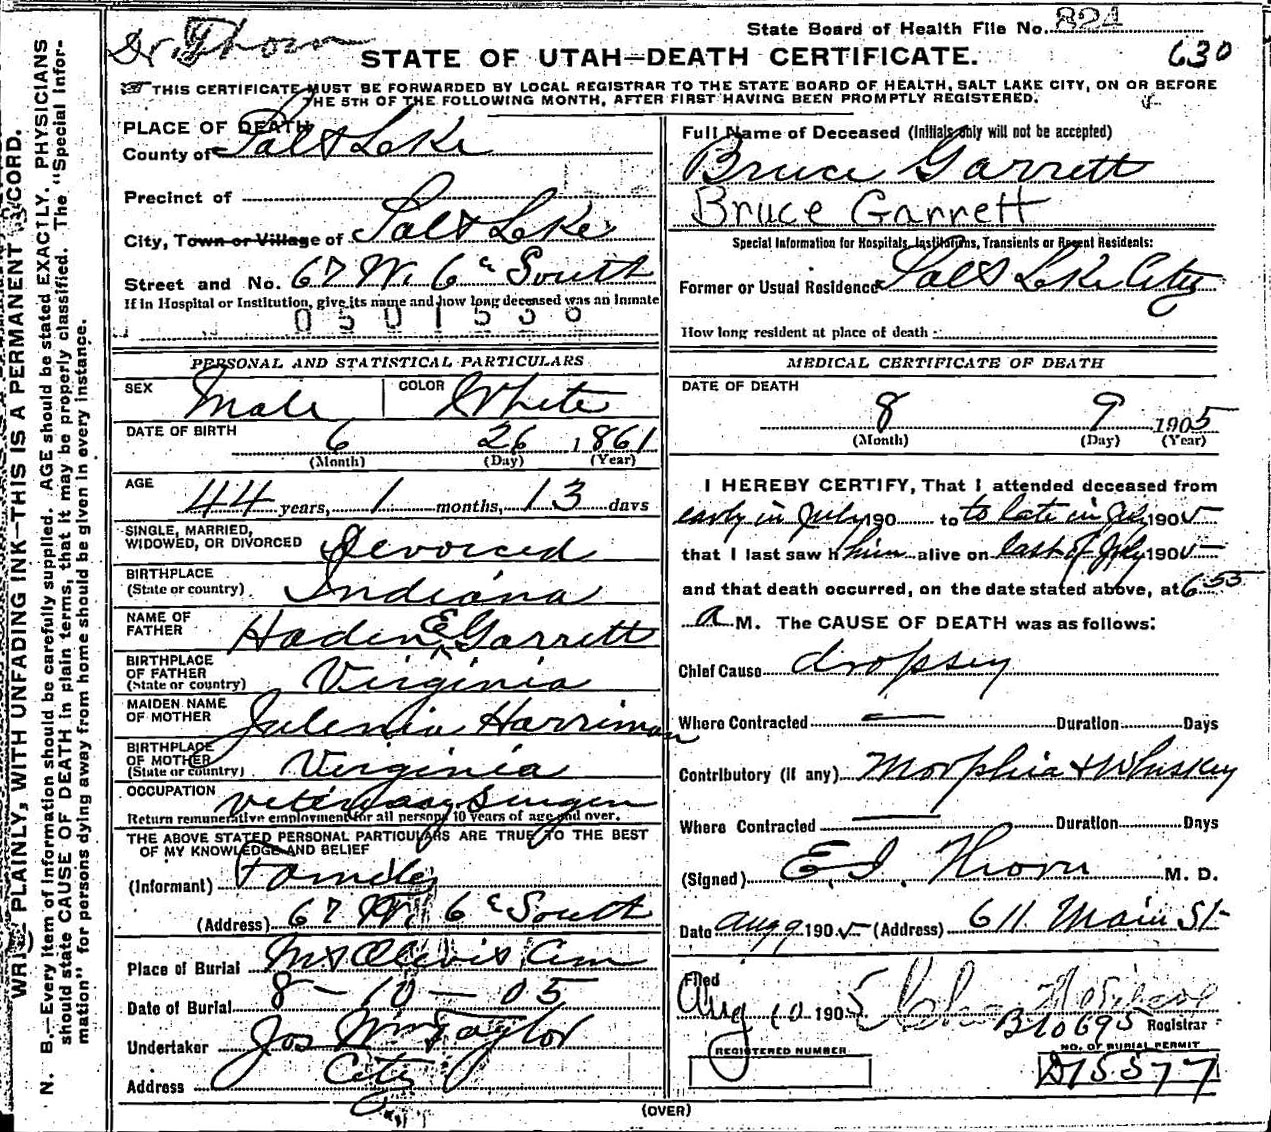 Dr Thorn
State Board of Health File No. 824
630
STATE OF UTAH—DEATH CERTIFICATE.
THIS CERTIFICATE MUST BE FORWARDED BY LOCAL REGISTRAR TO THE STATE BOARD OF HEALTH, SALT LAKE CITY, ON OR BEFORE
THE 5TH OF THE FOLLOWING MONTH, AFTER FIRST HAVING BEEN PROMPTLY REGISTERED.
WRITE PLAINLY, WITH UNFADING INK—THIS IS A PERMANENT RECORD.
N. B.—Every item of information should be carefully supplied. AGE should be stated EXACTLY. PHYSICIANS
should state CAUSE OF DEATH in plain terms, that it may be properly classified. The "Special Infor-
mation" for persons dying away from home should be given in every instance.
PLACE OF DEATH
County of Salt Lake
Precinct of
City, Town or Village of Salt Lake
Street and No. 67 W. 6th South
If in Hospital or Institution, give its name and how long deceased was an inmate
0501538
PERSONAL AND STATISTICAL PARTICULARS
SEX Male COLOR White
DATE OF BIRTH 6 26 1861
(Month) (Day) (Year)
AGE 44 years, 1 months, 13 days
SINGLE, MARRIED,
WIDOWED, OR DIVORCED Devorced
BIRTHPLACE
(State or country) Indiana
NAME OF
FATHER Haden E Garrett
BIRTHPLACE
OF FATHER
(State or country) Virginia
MAIDEN NAME
OF MOTHER Julenia Harriman
BIRTHPLACE
OF MOTHER
(State or country) Virginia
OCCUPATION Veterinary Surgen
Return remunerative employment for all persons 10 years of age and over.
THE ABOVE STATED PERSONAL PARTICULARS ARE TRUE TO THE BEST
OF MY KNOWLEDGE AND BELIEF
(Informant) Family
(Address) 67 W. 6th South
Place of Burial Mt Olevis Cem
Date of Burial 8 – 10 – 05
Undertaker Jos Wm Taylor
Address City
Full Name of Deceased (Initials only will not be accepted)
Bruce Garrett
Bruce Garrett
Special Information for Hospitals, Institutions, Transients or Recent Residents:
Former or Usual Residence Salt Lake City
How long resident at place of death
MEDICAL CERTIFICATE OF DEATH
DATE OF DEATH
8 9 1905
(Month) (Day) (Year)
I HEREBY CERTIFY, That I attended deceased from
early in July 190 to to late in July 1905
that I last saw him alive on last of July 1905
and that death occurred, on the date stated above, at 6 55
a M. The CAUSE OF DEATH was as follows:
Chief Cause dropsey
Where Contracted — Duration Days
Contributory (if any) Morphia & Whiskey
Where Contracted — Duration Days
(Signed) E. I. Thorn M. D.
Date Aug 9 1905 (Address) 611 Main St
Filed
Aug 10 1905
B10695 Registrar
REGISTERED NUMBER
NO. OF BURIAL PERMIT
D15577
(OVER)